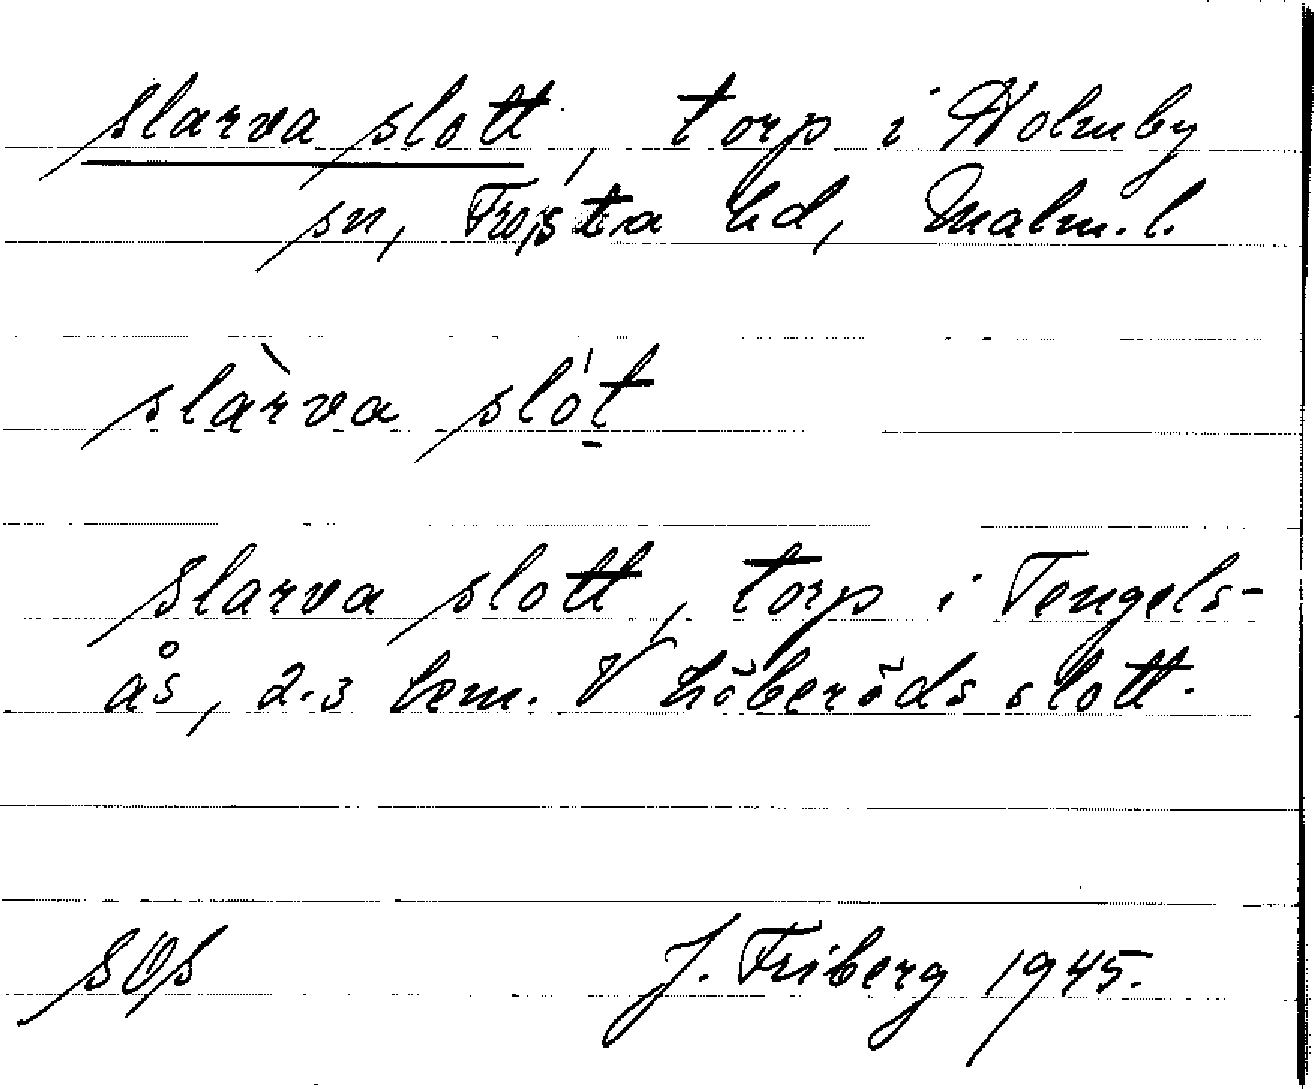 Slarva slott, torp i Holmby
sn, Frosta hd, Malm. l.
slàrva slót
Slarva slott, torp i Tengels-
ås, 2-3 km. V Löberöds slott.
SOS J. Friberg 1945.